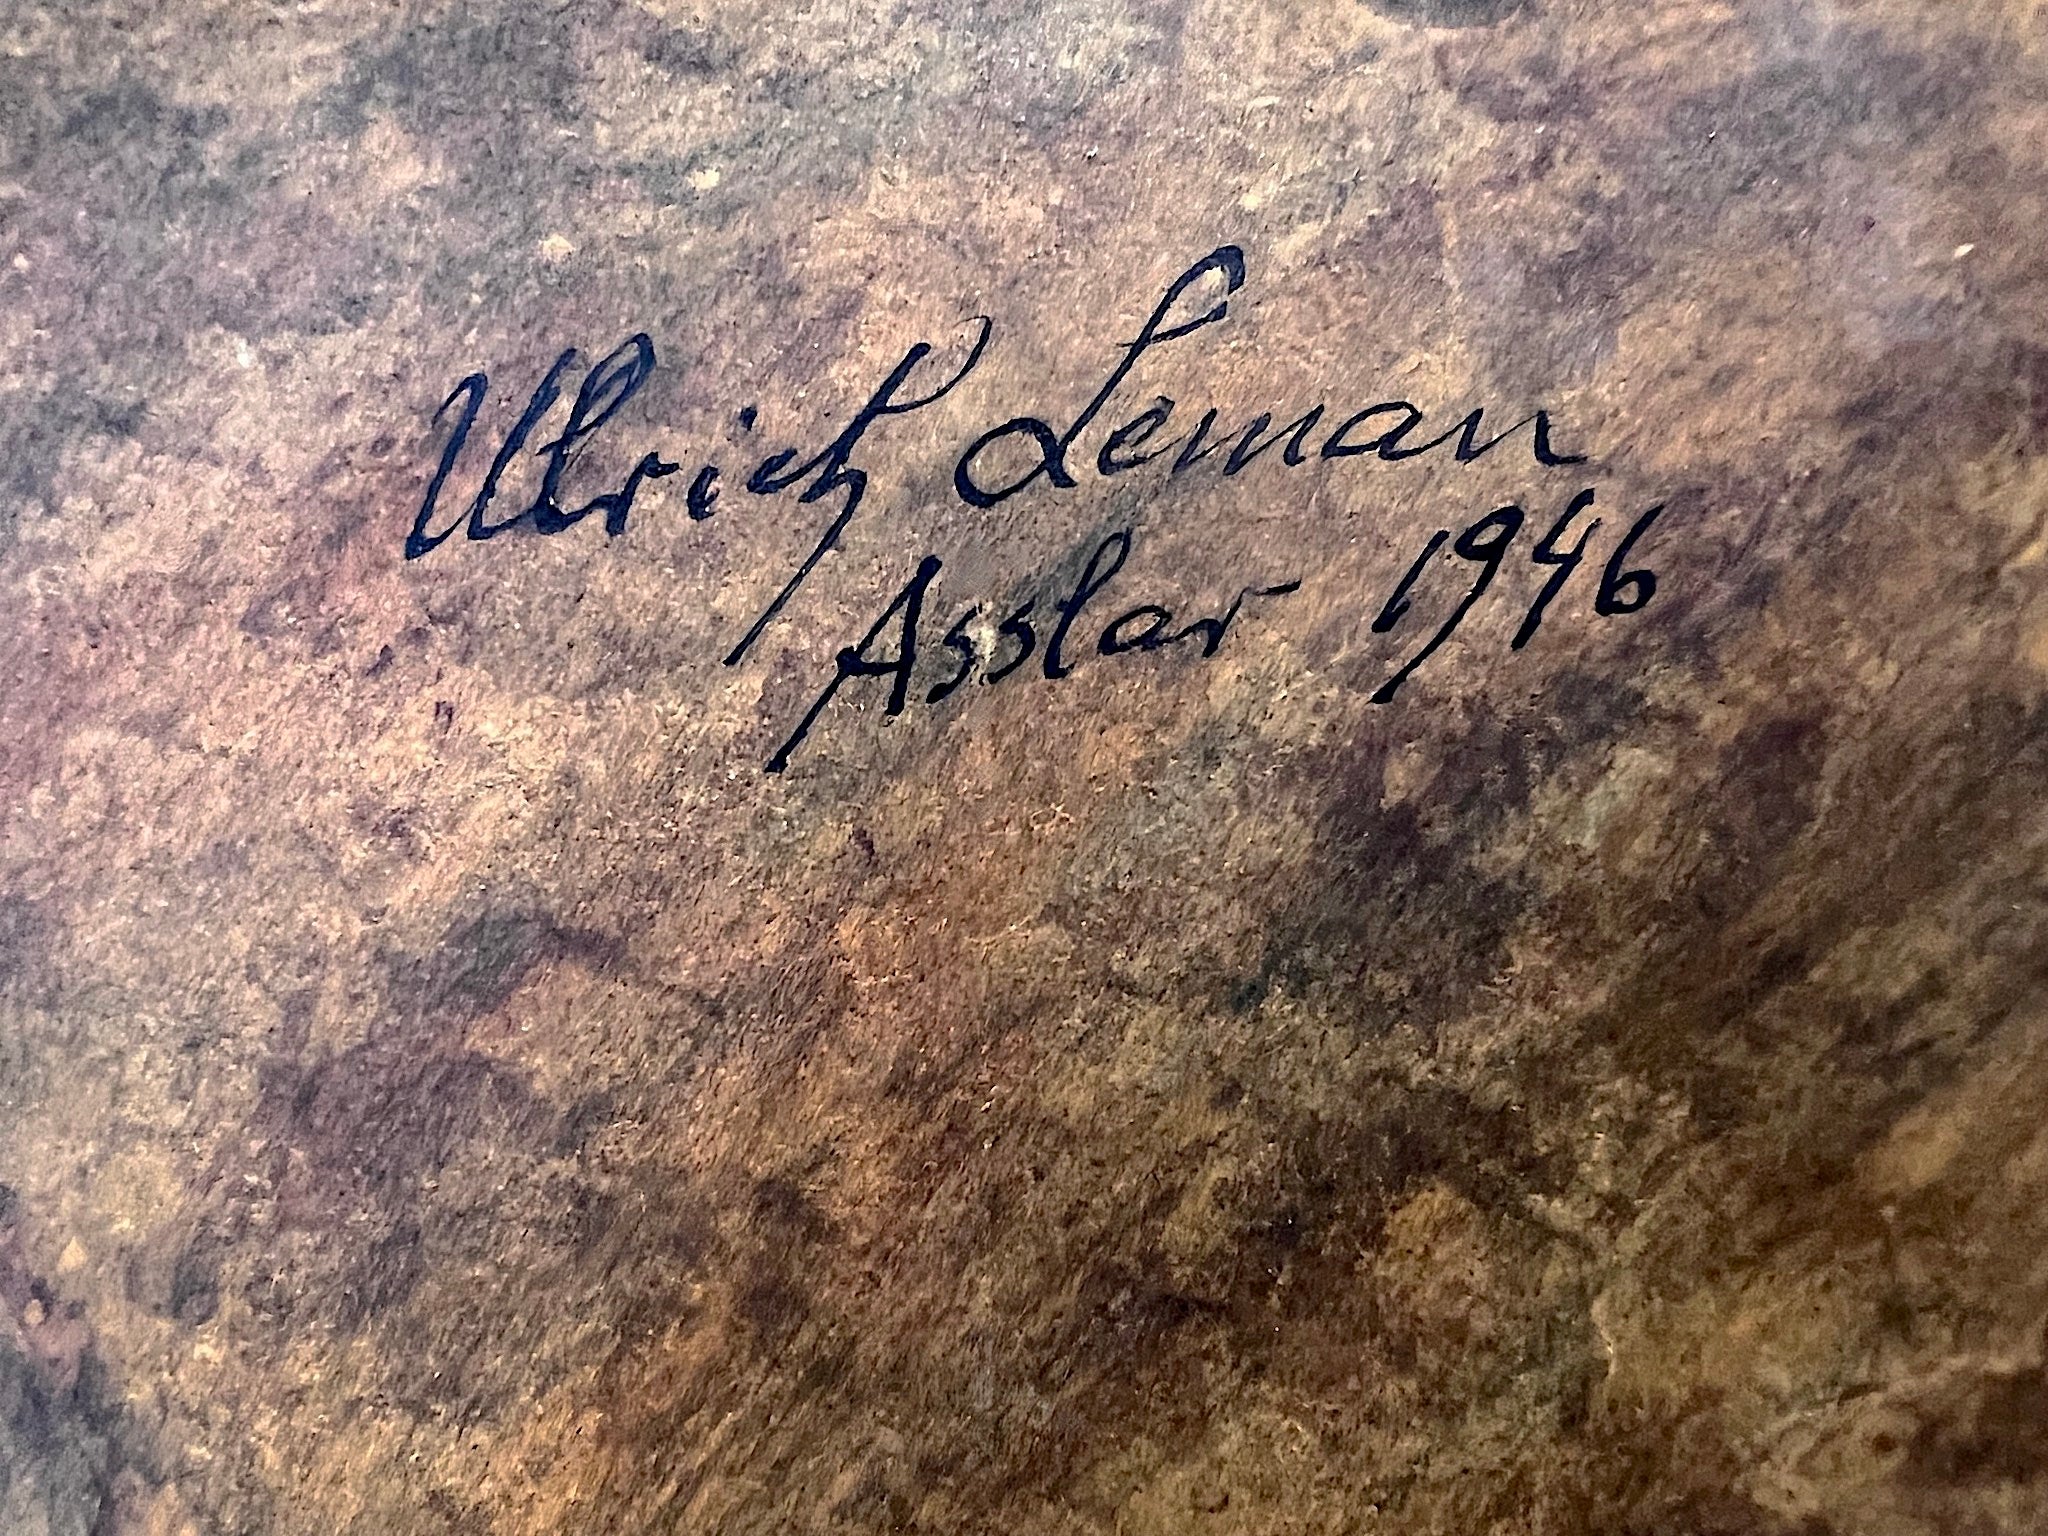 Ulrich Leman
Asslar 1946